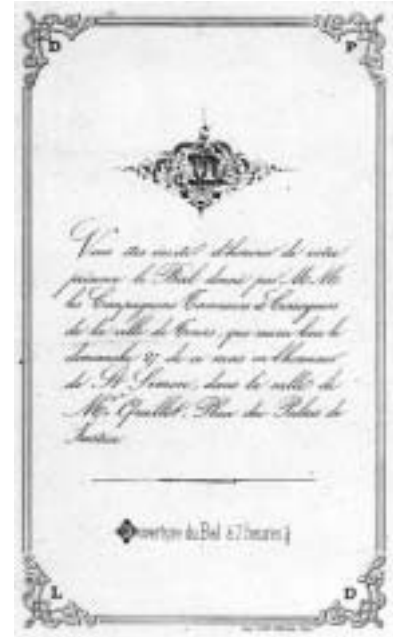 D P
Vous êtes invité d'honorer de votre
présence le Bal donné par M.M.
les Compagnons Tanneurs & Corroyeurs
de la ville de Tours, qui aura lieu le
dimanche 27 de ce mois en l'honneur
de St Simon, dans la salle de
Mr Place du Palais de
Justice
Ouverture du Bal à 7 heures ½
L D